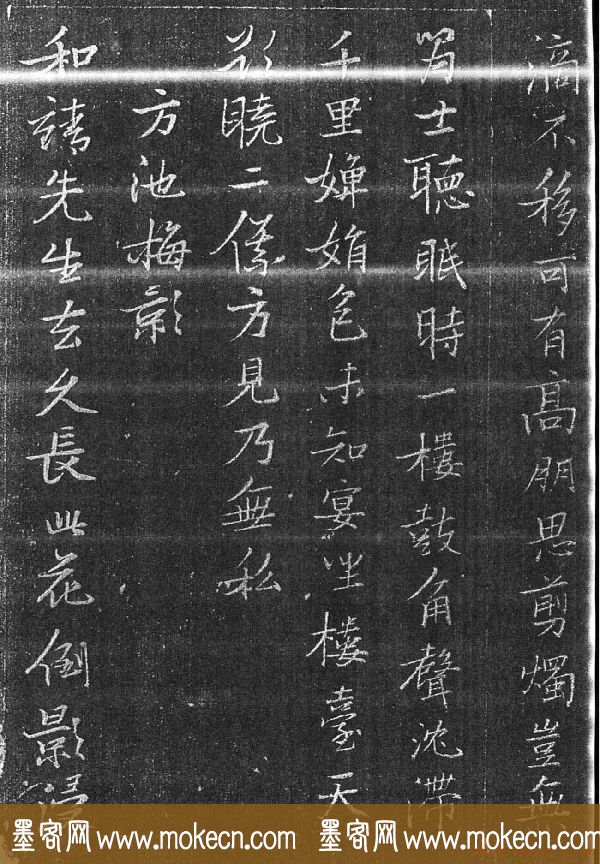 滴不移可有高朋思剪燭豈無
士聽眠時一樓鼓角聲沈滯
千里嬋娟色未知宴坐樓臺天
曉二儀方見乃無私
方池梅影
和靖先生去久長此花倒影浸
墨客网 www.mokecn.com 墨客网 www.mokecn.com